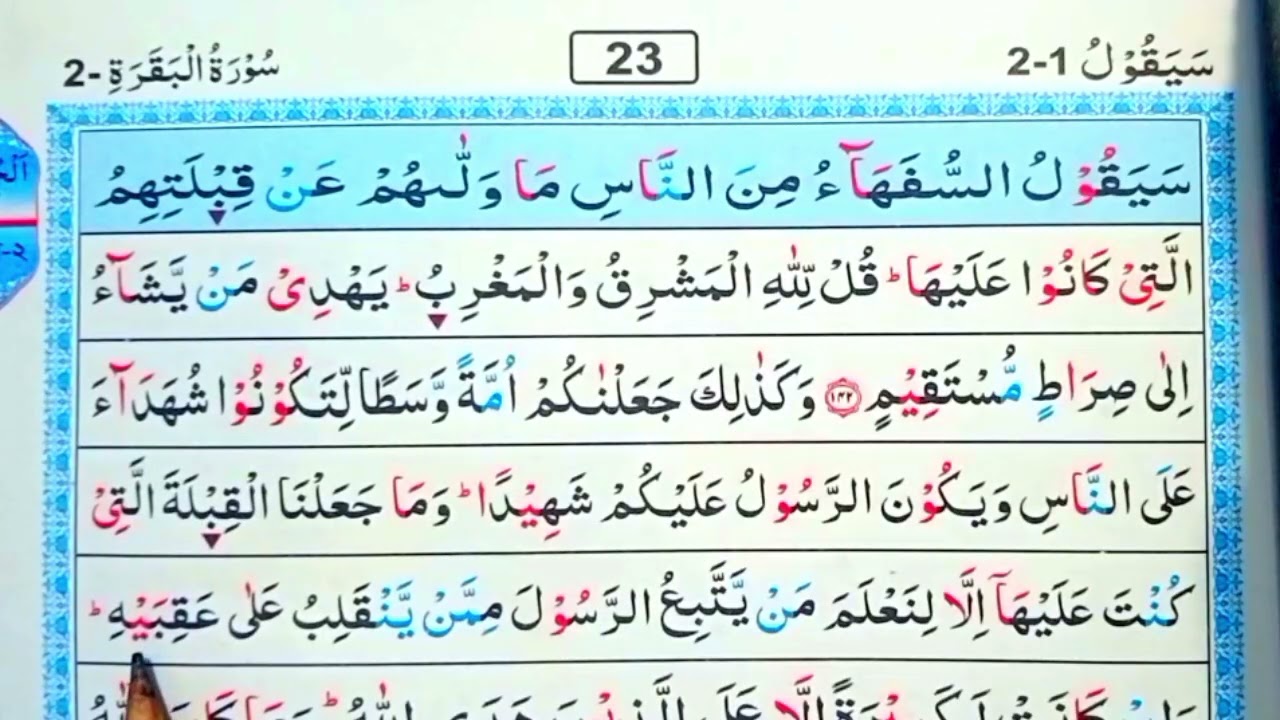 سَيَقُوْلُ 2-1
23
سُوْرَةُ الْبَقَرَةِ -2
سَيَقُوْلُ السُّفَهَآءُ مِنَ النَّاسِ مَا وَلّٰىهُمْ عَنْ قِبْلَتِهِمُ
الَّتِىْ كَانُوْا عَلَيْهَا ؕ قُلْ لِّلّٰهِ الْمَشْرِقُ وَالْمَغْرِبُ ؕ يَهْدِىْ مَنْ يَّشَآءُ
اِلٰى صِرَاطٍ مُّسْتَقِيْمٍ ۝۱۴۲ وَكَذٰلِكَ جَعَلْنٰكُمْ اُمَّةً وَّسَطًا لِّتَكُوْنُوْا شُهَدَآءَ
عَلَى النَّاسِ وَيَكُوْنَ الرَّسُوْلُ عَلَيْكُمْ شَهِيْدًا ؕ وَمَا جَعَلْنَا الْقِبْلَةَ الَّتِىْ
كُنْتَ عَلَيْهَآ اِلَّا لِنَعْلَمَ مَنْ يَّتَّبِعُ الرَّسُوْلَ مِمَّنْ يَّنْقَلِبُ عَلٰى عَقِبَيْهِ ؕ